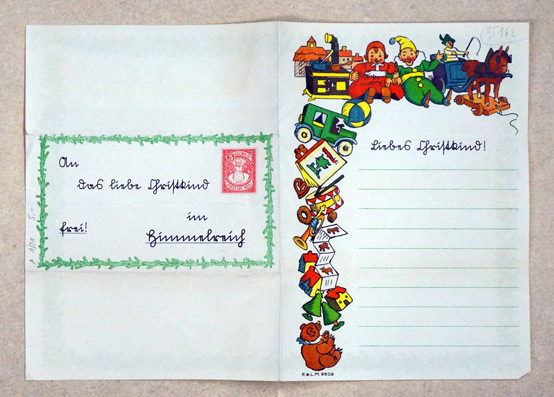 An
das liebe Christkind
im
frei!
Himmelreich
Liebes Christkind!
R.&L.M. 8609